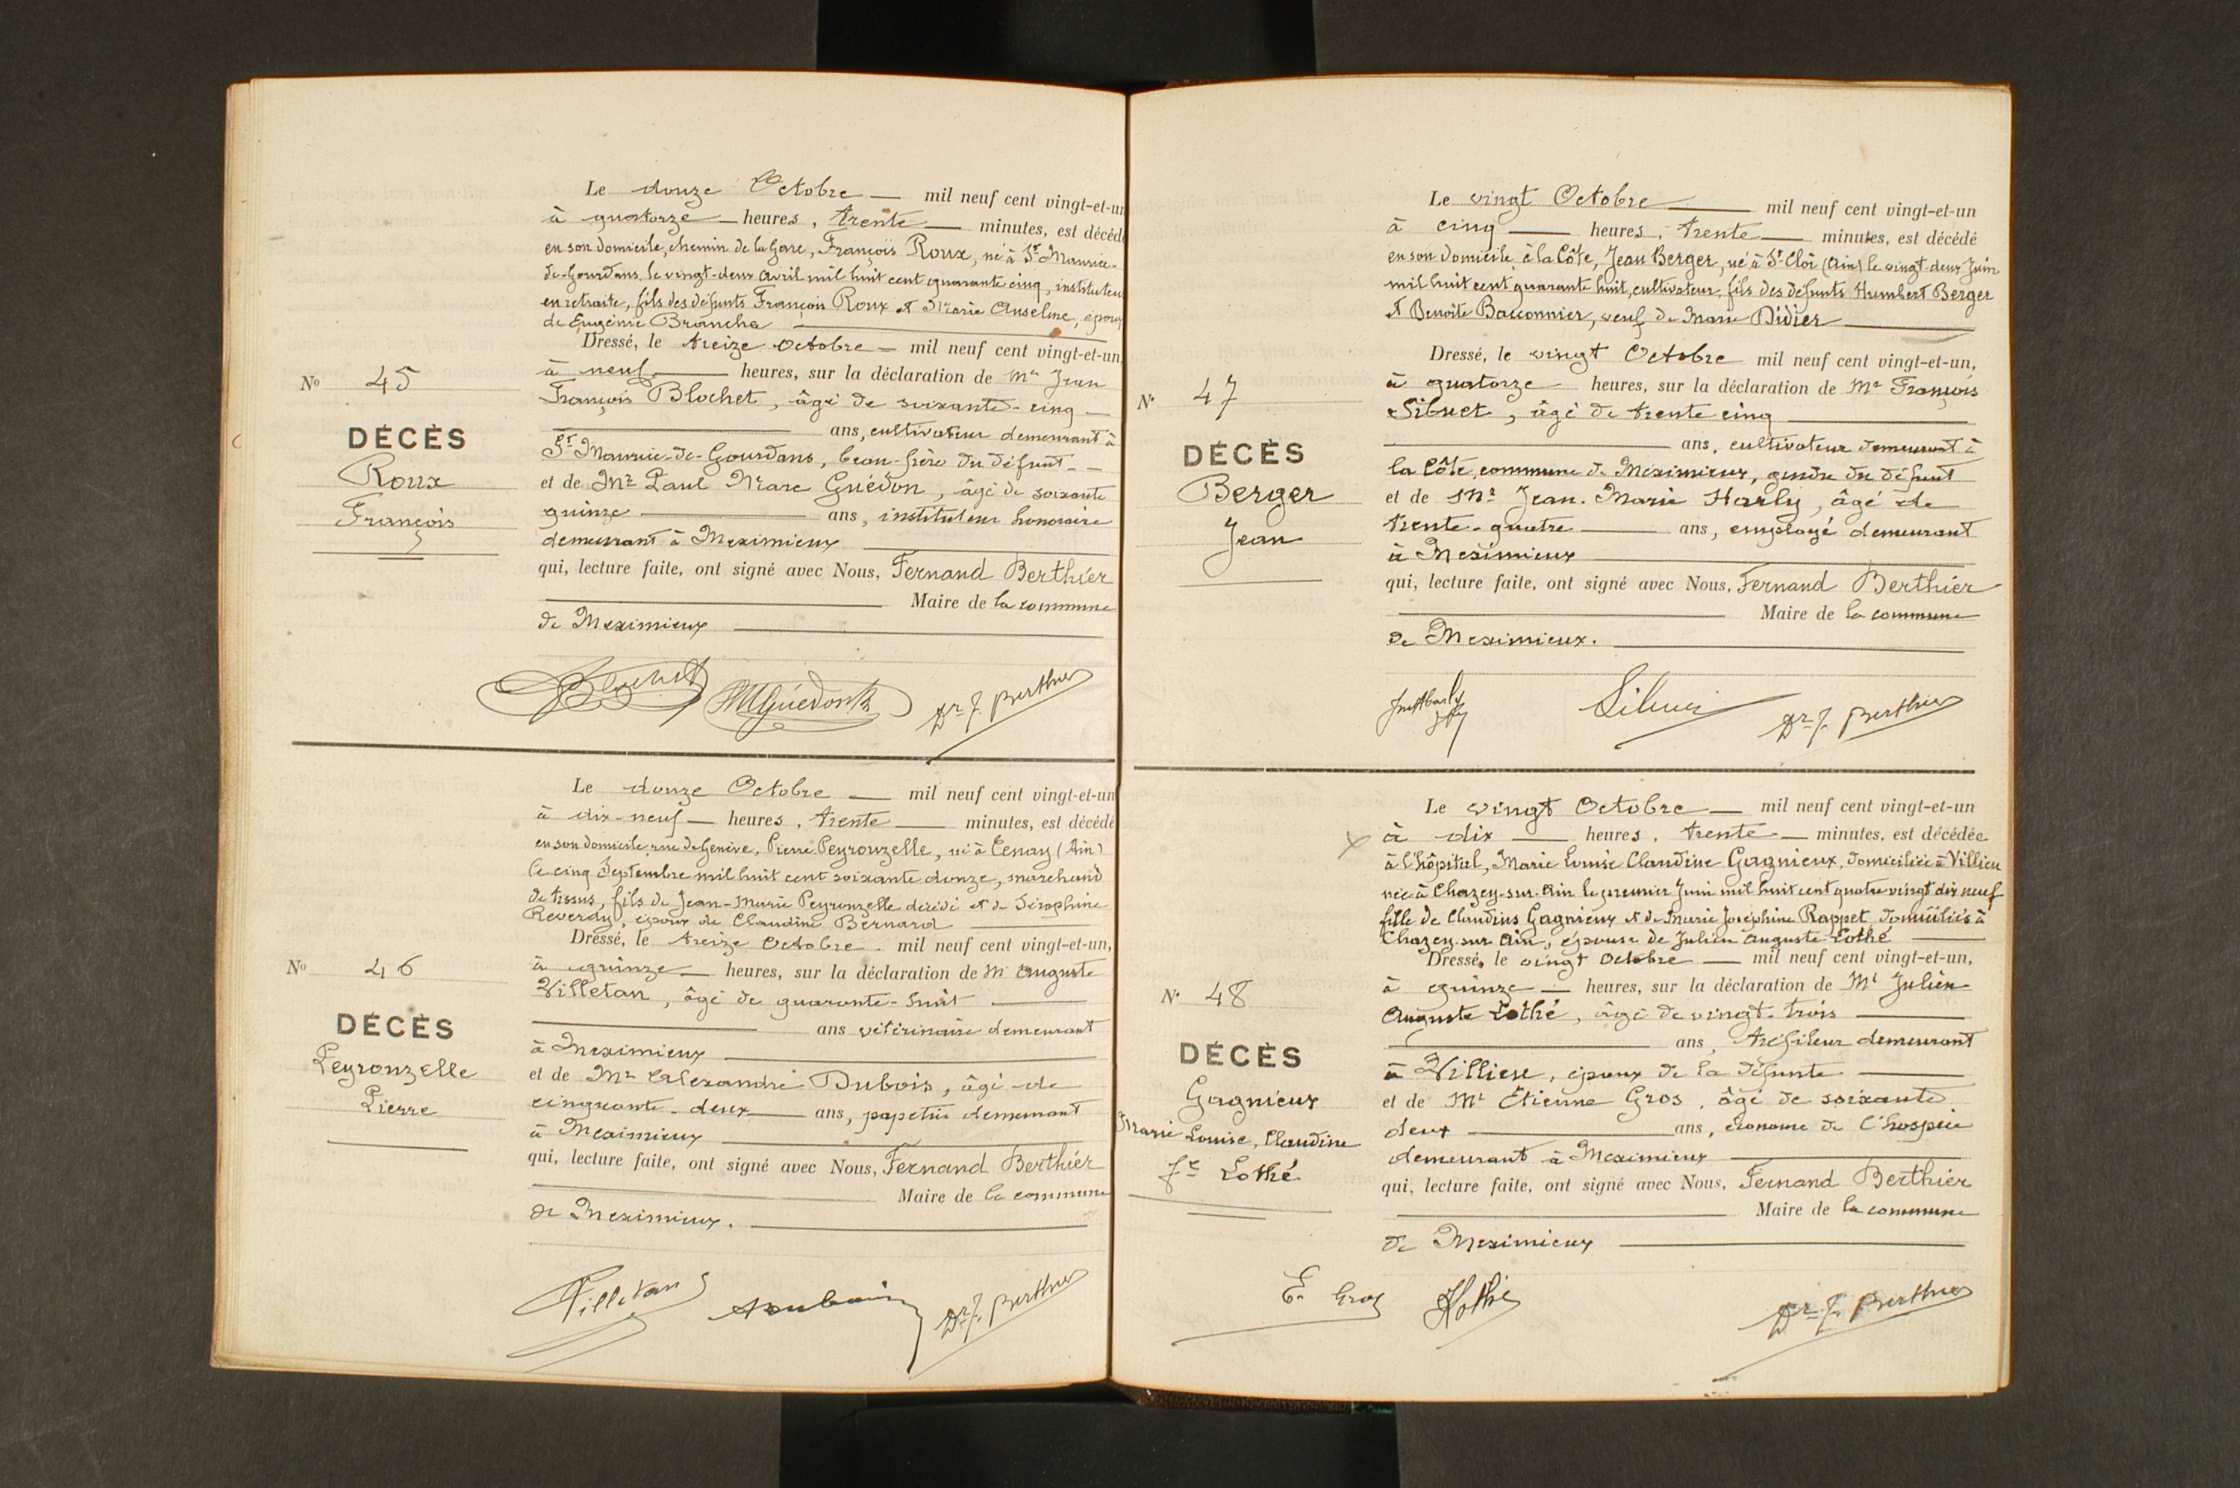 Le douze Octobre — mil neuf cent vingt-et-un
à quatorze — heures, trente — minutes, est décédé
en son domicile, chemin de la Gare, François Roux, né à St Maurice-
de-Gourdans, le vingt-deux avril mil huit cent quarante cinq, instituteur
en retraite, fils des défunts François Roux et Marie Anselme, époux
de Eugénie Branche
Dressé, le treize octobre — mil neuf cent vingt-et-un,
à neuf — heures, sur la déclaration de Mr Jean
François Blochet, âgé de soixante-cinq —
ans, cultivateur demeurant à
St Maurice-de-Gourdans, beau-frère du défunt —
et de Mr Paul Marc Guédon, âgé de soixante
quinze — ans, instituteur honoraire
demeurant à Meximieux
qui, lecture faite, ont signé avec Nous, Fernand Berthier
Maire de la commune
de Meximieux
No 45
DÉCÈS
Roux
François
Blochet PMGuédon Dr F. Berthier
Le douze Octobre — mil neuf cent vingt-et-un
à dix-neuf — heures, trente — minutes, est décédé
en son domicile, rue de Genève, Pierre Peyronzelle, né à Tenay (Ain)
le cinq Septembre mil huit cent soixante douze, marchand
de tissus, fils de Jean-Marie Peyronzelle décédé et de Séraphine
Reverdy, époux de Claudine Bernard
Dressé, le treize octobre mil neuf cent vingt-et-un,
à quinze — heures, sur la déclaration de Mr Auguste
Villetan, âgé de quarante-huit
ans vétérinaire demeurant
à Meximieux
et de Mr Alexandre Dubois, âgé de
cinquante-deux — ans, papetier demeurant
à Meximieux
qui, lecture faite, ont signé avec Nous, Fernand Berthier
Maire de la commune
de Meximieux.
No 46
DÉCÈS
Peyronzelle
Pierre
Villetan Dr F. Berthier
Le vingt Octobre — mil neuf cent vingt-et-un
à cinq — heures, trente — minutes, est décédé
en son domicile, à la Côte, Jean Berger, né à St Eloi (Ain) le vingt-deux Juin
mil huit cent quarante huit, cultivateur, fils des défunts Humbert Berger
et Benoîte Bacconnier, veuf de Marie Didier
Dressé, le vingt Octobre mil neuf cent vingt-et-un,
à quatorze heures, sur la déclaration de Mr François
Sibuet, âgé de trente cinq
ans, cultivateur demeurant à
la Côte, commune de Meximieux, gendre du défunt
et de Mr Jean-Marie Harly, âgé de
trente-quatre — ans, employé demeurant
à Meximieux
qui, lecture faite, ont signé avec Nous, Fernand Berthier
Maire de la commune
de Meximieux.
No 47
DÉCÈS
Berger
Jean
Sibuet Dr F. Berthier
Le vingt Octobre — mil neuf cent vingt-et-un
à dix — heures, trente — minutes, est décédée
à l'hôpital, Marie Louise Claudine Gagnieux, domiciliée à Villieu
née à Chazey-sur-Ain le premier Juin mil huit cent quatre vingt dix neuf
fille de Claudius Gagnieux et de Marie Joséphine Rappet domiciliés à
Chazey-sur Ain, épouse de Julien Auguste Lothé
Dressé, le vingt Octobre — mil neuf cent vingt-et-un,
à quinze — heures, sur la déclaration de Mr Julien
Auguste Lothé, âgé de vingt-trois
ans, tréfileur demeurant
à Villieu, époux de la défunte
et de Mr Étienne Gros, âgé de soixante
deux — ans, économe de l'hospice
demeurant à Meximieux
qui, lecture faite, ont signé avec Nous, Fernand Berthier
Maire de la commune
de Meximieux
No 48
DÉCÈS
Gagnieux
Marie Louise, Claudine
fe Lothé
E. Gros Lothé Dr F. Berthier